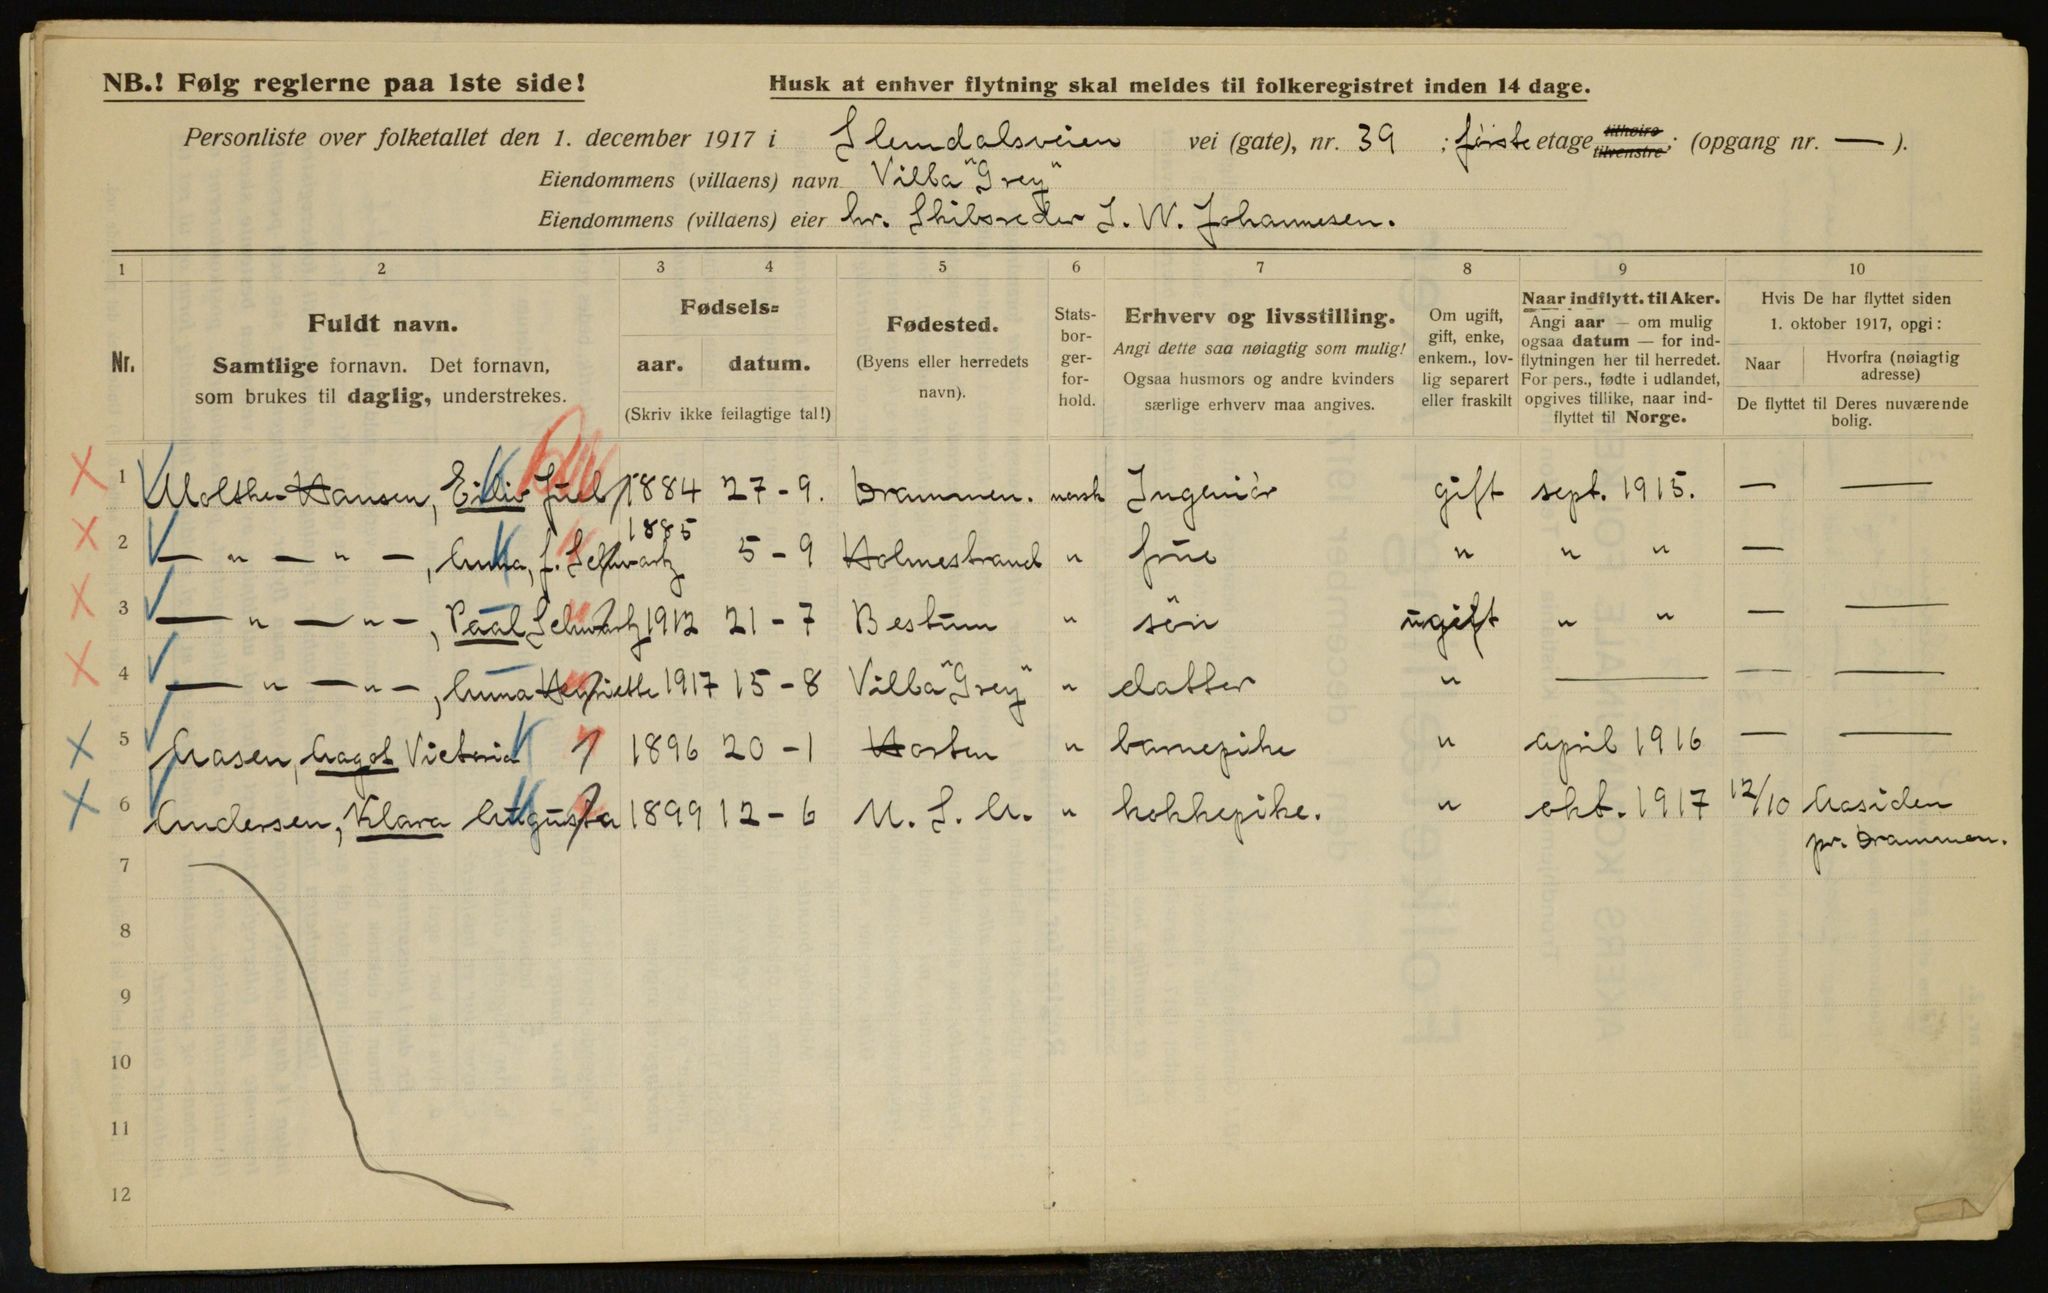 NB.! Følg reglerne paa 1ste side! Husk at enhver flytning skal meldes til folkeregistret inden 14 dage.
Personliste over folketallet den 1. december 1917 i Slemdalsveien vei (gate), nr. 39 ; første etage tilhøire tilvenstre; (opgang nr. — ).
Eiendommens (villaens) navn Villa "Grey"
Eiendommens (villaens) eier hr. Skibsreder I. W. Johannesen.
1 2 3 4 5 6 7 8 9 10
Nr.
Fuldt navn.
Samtlige fornavn. Det fornavn,
som brukes til daglig, understrekes.
Fødsels=
aar. datum.
(Skriv ikke feilagtige tal!)
Fødested.
(Byens eller herredets
navn).
Stats-
bor-
ger-
for-
hold.
Erhverv og livsstilling.
Angi dette saa nøiagtig som mulig!
Ogsaa husmors og andre kvinders
særlige erhverv maa angives.
Om ugift,
gift, enke,
enkem., lov-
lig separert
eller fraskilt
Naar indflytt. til Aker.
Angi aar — om mulig
ogsaa datum — for ind-
flytningen her til herredet.
For pers., fødte i udlandet,
opgives tillike, naar ind-
flyttet til Norge.
Hvis De har flyttet siden
1. oktober 1917, opgi:
Naar Hvorfra (nøiagtig
adresse)
De flyttet til Deres nuværende
bolig.
1 Molthe-Hansen, Eiliv Juel 1884 27-9. Drammen. norsk Ingeniör gift sept. 1915. — —
2 — " — " —, Anna, f. Schwartz 1885 5-9 Holmestrand " frue " " " —
3 — " — " —, Paal Schwartz 1912 21-7 Bestum " sön ugift " " — —
4 — " — " —, Anna Henriette 1917 15-8 Villa "Grey" " datter " — — —
5 Aasen, Aagot Victoria 1896 20-1 Horten " barnepike " april 1916 — —
6 Andersen, Klara Augusta 1899 12-6 U. S. A. " kokkepike. " okt. 1917 12/10 Aasiden
pr. Drammen.
7
8
9
10
11
12